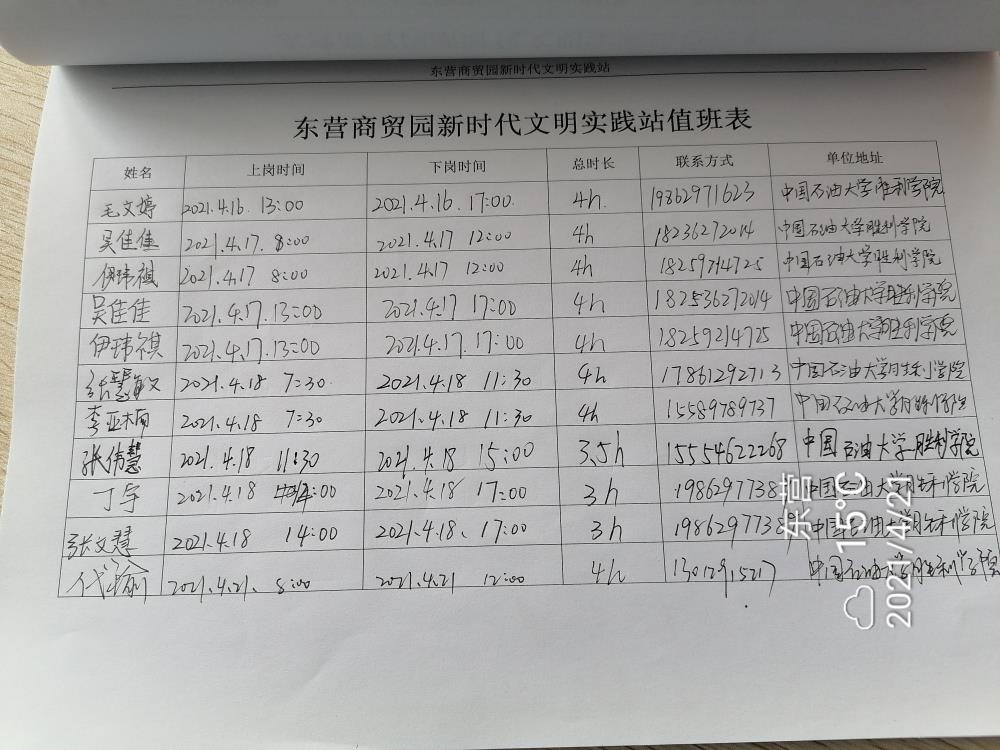 东营商贸园新时代文明实践站
东营商贸园新时代文明实践站值班表
姓名 上岗时间 下岗时间 总时长 联系方式 单位地址
毛文婷 2021.4.16. 13:00 2021.4.16. 17:00. 4h. 19862971623 中国石油大学胜利学院
吴佳佳 2021.4.17. 8:00 2021.4.17 12:00 4h 18236272014 中国石油大学胜利学院
伊玮祺 2021.4.17 8:00 2021.4.17 12:00 4h 18259214725 中国石油大学胜利学院
吴佳佳 2021.4.17. 13:00 2021.4.17 17:00 4h 182536272014 中国石油大学胜利学院
伊玮祺 2021.4.17. 13:00 2021.4.17. 17:00 4h 18259214725 中国石油大学胜利学院
张慧敏 2021.4.18 7:30 2021.4.18 11:30 4h 17861292713 中国石油大学胜利学院
李亚楠 2021.4.18 7:30 2021.4.18 11:30 4h 15589789737 中国石油大学胜利学院
张伟慧 2021.4.18 11:30 2021.4.18 15:00 3.5h 15554622268 中国石油大学胜利学院
丁宇 2021.4.18 :00 2021.4.18 17:00 3h 1986297738 中国石油大学胜利学院
张文慧 2021.4.18 14:00 2021.4.18、17:00 3h 1986297738 中国石油大学胜利学院
代 2021.4.21. 8:00 2021.4.21 12:00 4h 中国石油大学胜利学院
东营
15℃
2021/4/21